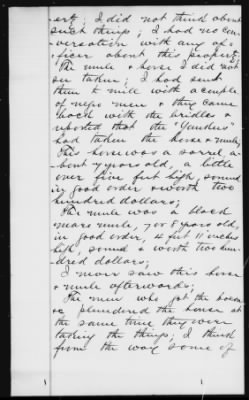 ert; I did not think about
such things; I had no con-
versation with any of-
ficer about this property.
The mule & horse I did not
see taken; I had sent
them to mill with a couple
of negro men & they came
back with the bridles &
reported that the "Yankees"
had taken the horse & mule;
The horse was a sorrel a-
bout 7 years old, a little
over five feet high, sound
in good order & worth two
hundred dollars;
The mule was a blood
mare mule, 7 or 8 years old,
in good order, 4 feet 11 inches
high, sound & worth two hun-
dred dollars;
I never saw this horse
& mule afterwards;
The men who got the bacon
& plundered the house at
the same time they were
taking the things; I think
from the way some of